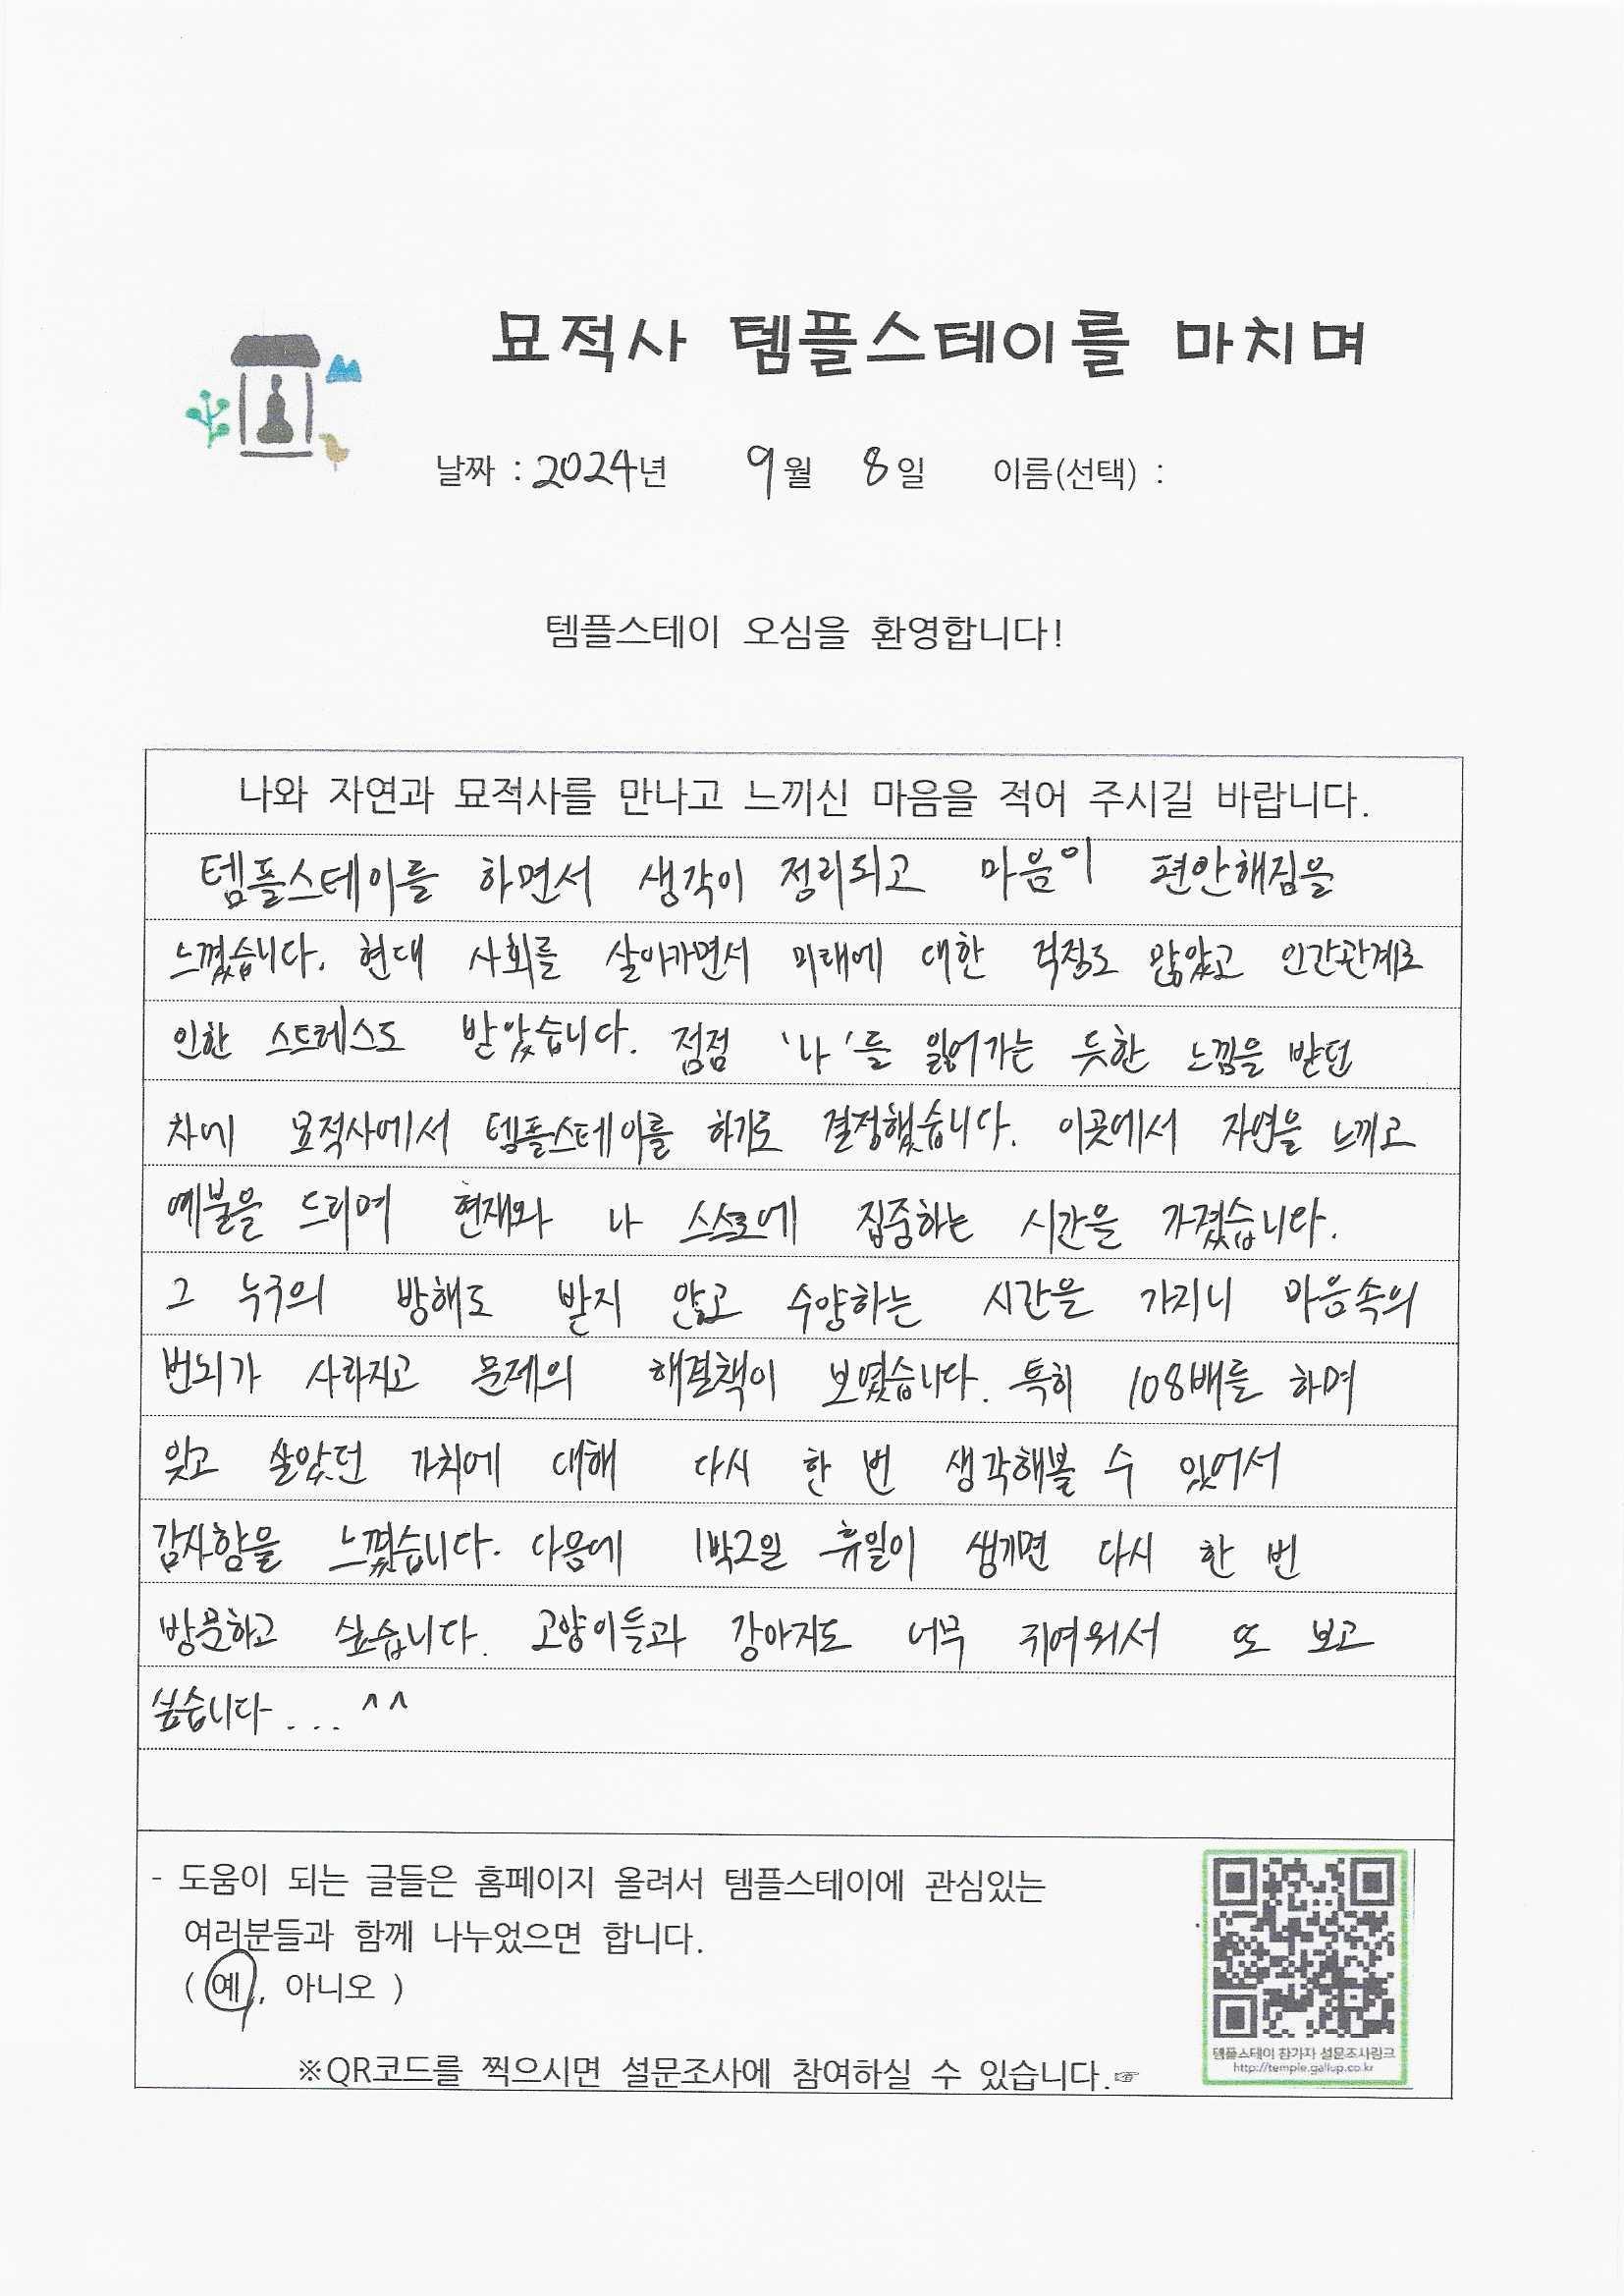 묘적사 템플스테이를 마치며
날짜 : 2024년 9월 8일 이름(선택) :
템플스테이 오심을 환영합니다!
나와 자연과 묘적사를 만나고 느끼신 마음을 적어 주시길 바랍니다.
템플스테이를 하면서 생각이 정리되고 마음이 편안해짐을
느꼈습니다. 현대 사회를 살아가면서 미래에 대한 걱정도 많았고 인간관계로
인한 스트레스도 받았습니다. 점점 '나'를 잃어가는 듯한 느낌을 받던
차에 묘적사에서 템플스테이를 하기로 결정했습니다. 이곳에서 자연을 느끼고
예불을 드리며 현재와 나 스스로에 집중하는 시간을 가졌습니다.
그 누구의 방해도 받지 않고 수양하는 시간을 가지니 마음속의
번뇌가 사라지고 문제의 해결책이 보였습니다. 특히 108배를 하며
잊고 살았던 가치에 대해 다시 한 번 생각해볼 수 있어서
감사함을 느꼈습니다. 다음에 1박2일 휴일이 생기면 다시 한 번
방문하고 싶습니다. 고양이들과 강아지도 너무 귀여워서 또 보고
싶습니다... ^^
- 도움이 되는 글들은 홈페이지 올려서 템플스테이에 관심있는
여러분들과 함께 나누었으면 합니다.
( 예, 아니오 )
※QR코드를 찍으시면 설문조사에 참여하실 수 있습니다.☞
템플스테이 참가자 설문조사링크
http://temple.gallup.co.kr